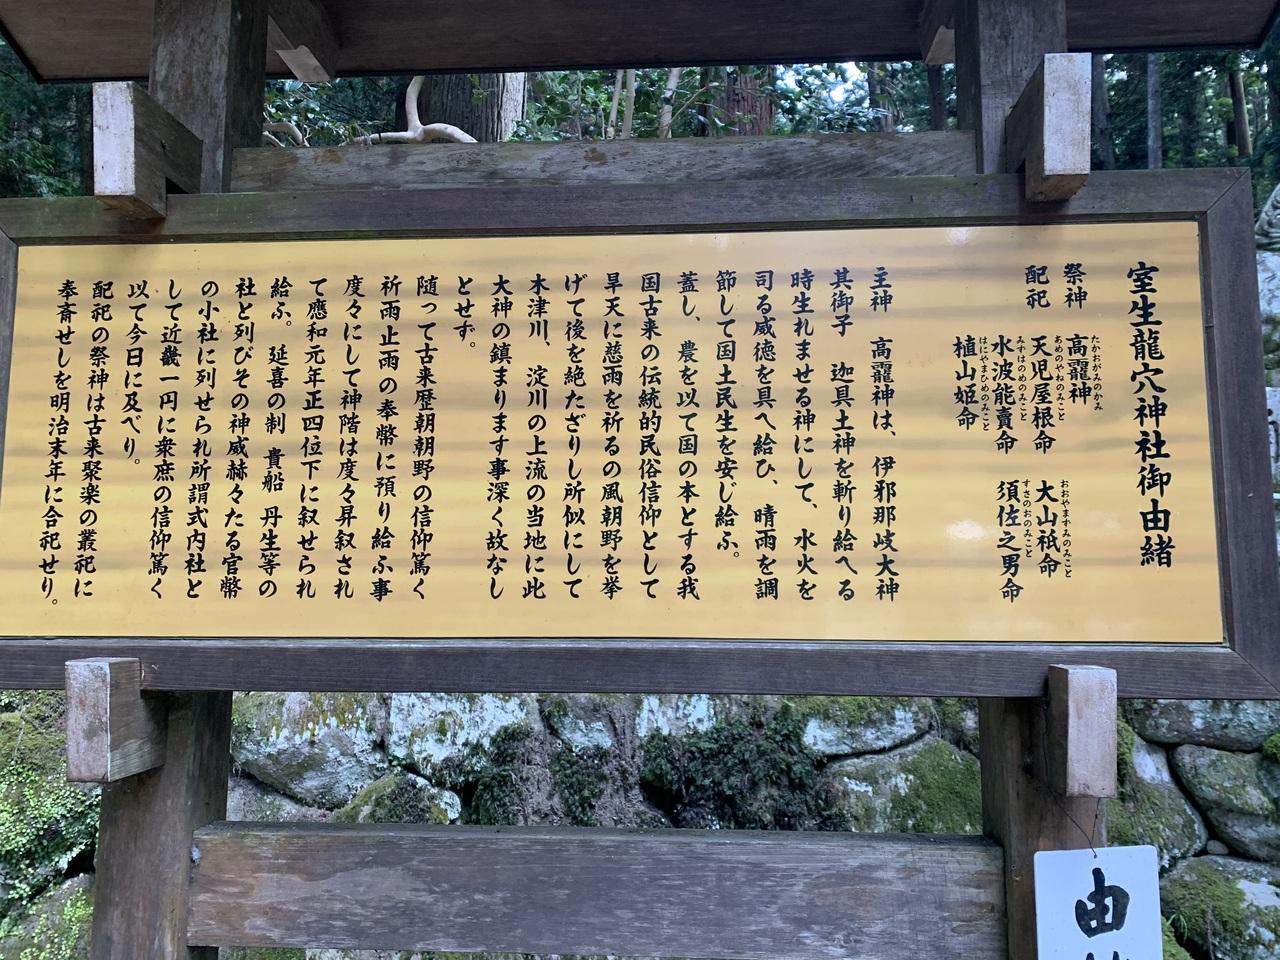 室生龍穴神社御由緒
祭神　高龗神
たかおがみのかみ
配祀　天児屋根命　大山祗命
あめのやねのみこと　おおやますみのみこと
水波能賣命　須佐之男命
みずはのめのみこと　すさのおのみこと
植山姫命
はにやまひめのみこと
主神　高龗神は、伊邪那岐大神
其御子　迦具土神を斬り給へる
時生れませる神にして、水火を
司る威徳を具へ給ひ、晴雨を調
節して国土民生を安じ給ふ。
蓋し、農を以て国の本とする我
国古来の伝統的民俗信仰として
旱天に慈雨を祈るの風朝野を挙
げて後を絶たざりし所似にして
木津川、淀川の上流の当地に此
大神の鎮まります事深く故なし
とせず。
随って古来歴朝朝野の信仰篤く
祈雨止雨の奉幣に預り給ふ事
度々にして神階は度々昇叙され
て應和元年正四位下に叙せられ
給ふ。延喜の制　貴船　丹生等の
社と列びその神威赫々たる官幣
の小社に列せられ所謂式内社と
して近畿一円に衆庶の信仰篤く
以て今日に及べり。
配祀の祭神は古来聚楽の叢祀に
奉斎せしを明治末年に合祀せり。
由